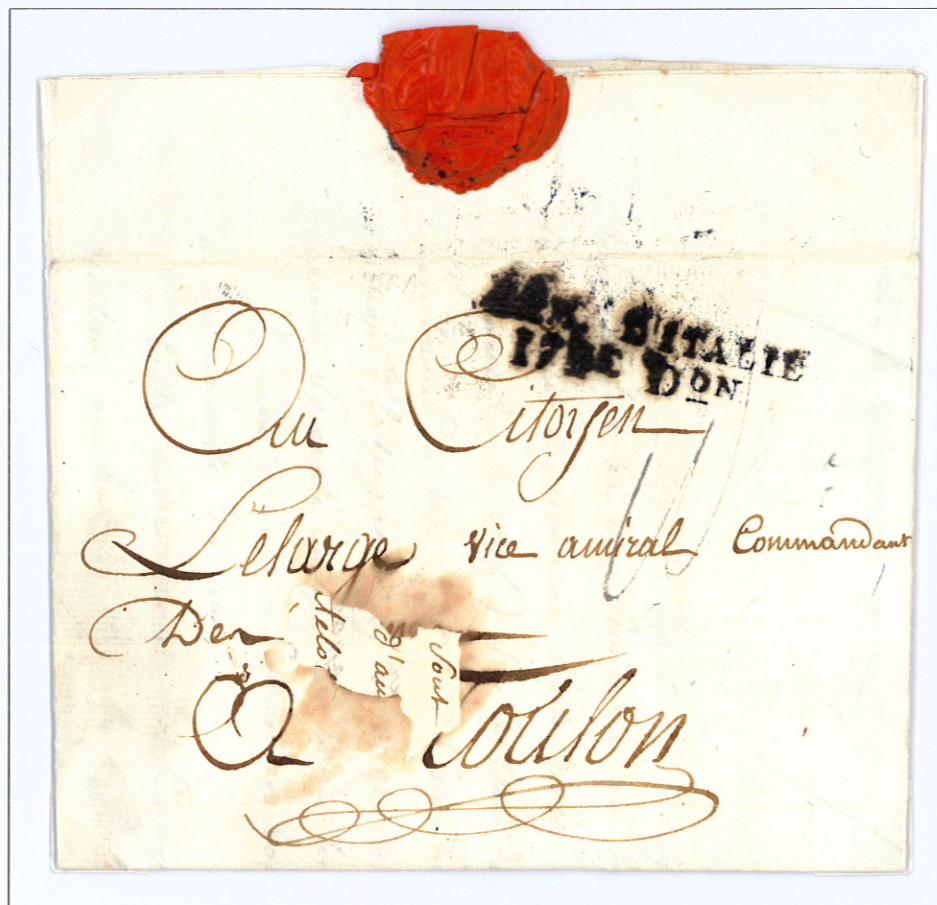 D'ITALIE
17ME DON
Au Citoyen
Lelarge vice amiral Commandant
Des
a Toulon
d'au
Sont